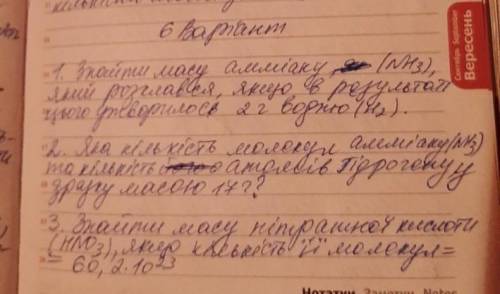 6 Варіант
1. Знайти масу амміаку (NH3),
який розклався, якщо в результаті
цього утворилось 2 г водню (H2).
2. Яка кількість молекул амміаку (NH3)
та кількість атомів Гідрогену у
зразку масою 17 г?
3. Знайти масу нітратної кислоти
(HNO3), якщо кількість її молекул =
= 60,2·10²³
Сентябрь September
Вересень
Нотатки Заметки Notes